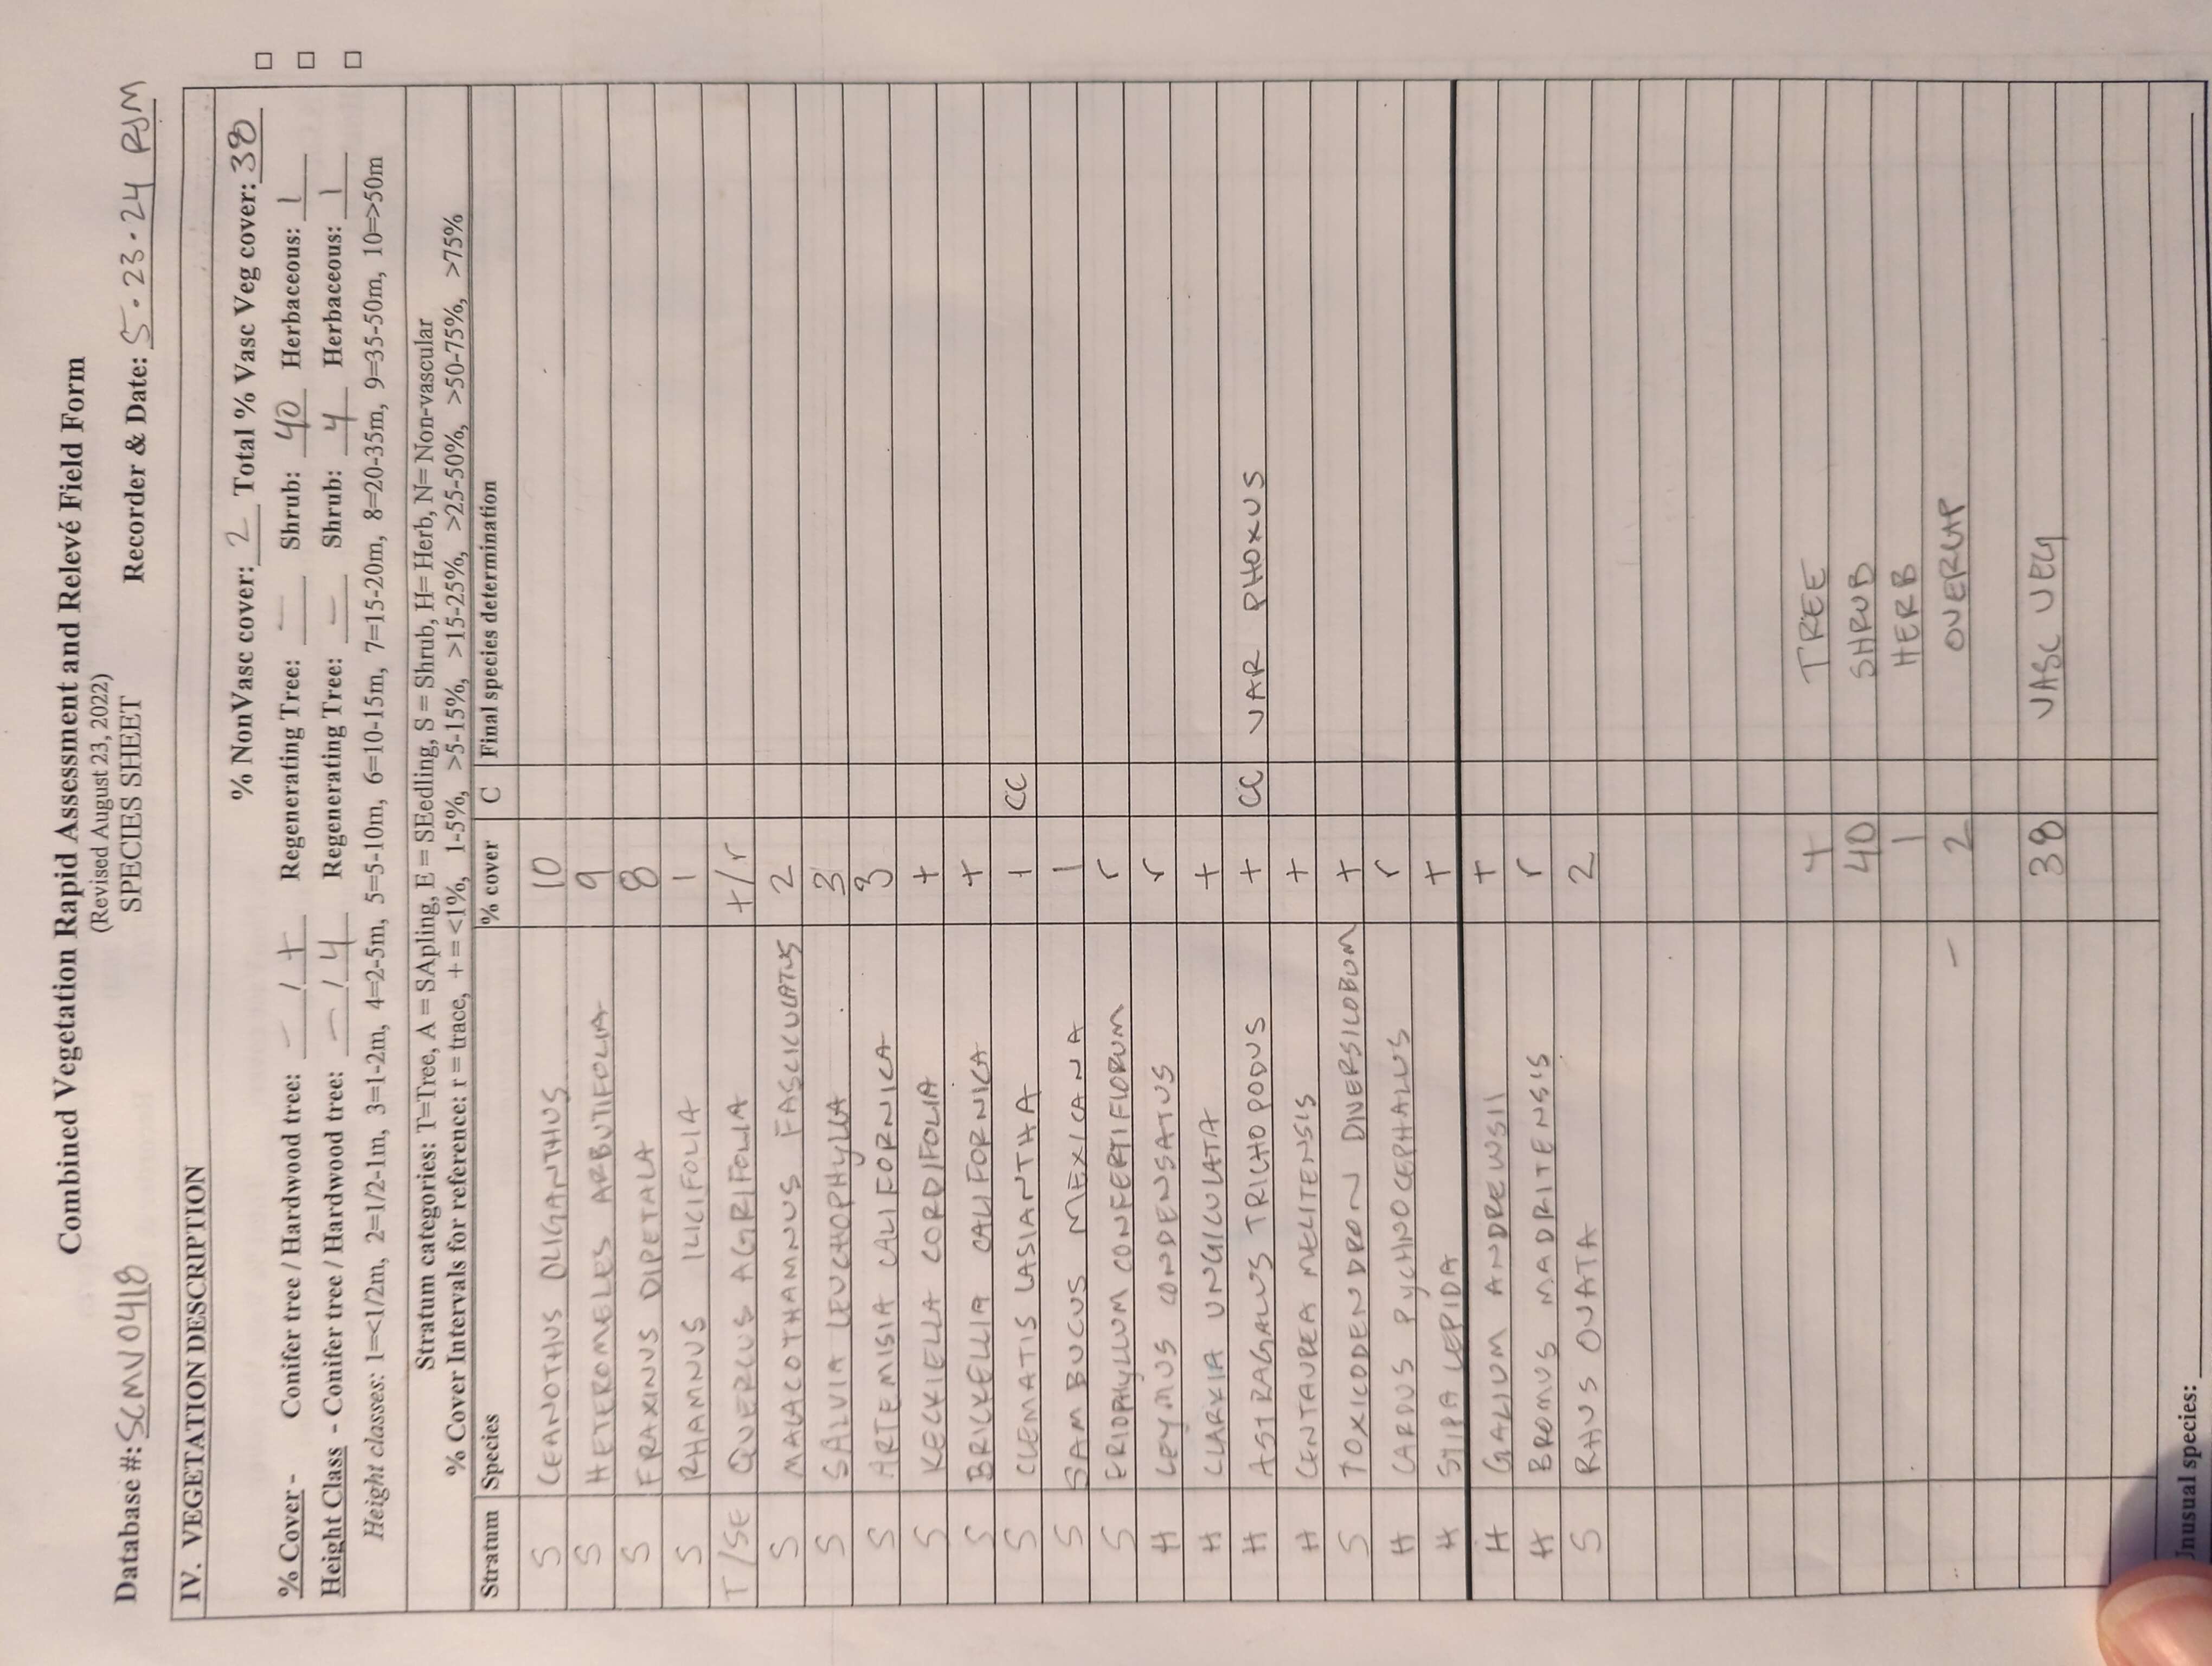 Combined Vegetation Rapid Assessment and Relevé Field Form
(Revised August 23, 2022)
SPECIES SHEET
Database #: SCMV0418 Recorder & Date: 5-23-24 RJM
IV. VEGETATION DESCRIPTION
% NonVasc cover: 2 Total % Vasc Veg cover: 38
% Cover - Conifer tree / Hardwood tree: – / + Regenerating Tree: – Shrub: 40 Herbaceous: 1
Height Class - Conifer tree / Hardwood tree: – / 4 Regenerating Tree: – Shrub: 4 Herbaceous: 1
Height classes: 1=<1/2m, 2=1/2-1m, 3=1-2m, 4=2-5m, 5=5-10m, 6=10-15m, 7=15-20m, 8=20-35m, 9=35-50m, 10=>50m
Stratum categories: T=Tree, A = SApling, E = SEedling, S = Shrub, H= Herb, N= Non-vascular
% Cover Intervals for reference: r = trace, + = <1%, 1-5%, >5-15%, >15-25%, >25-50%, >50-75%, >75%
Stratum Species % cover C Final species determination
S CEANOTHUS OLIGANTHUS 10
S HETEROMELES ARBUTIFOLIA 9
S FRAXINUS DIPETALA 8
S RHAMNUS ILICIFOLIA 1
T/SE QUERCUS AGRIFOLIA +/r
S MALACOTHAMNUS FASCICULATUS 2
S SALVIA LEUCHOPHYLLA 3
S ARTEMISIA CALIFORNICA 3
S KECKIELLA CORDIFOLIA +
S BRICKELLIA CALIFORNICA +
S CLEMATIS LASIANTHA + CC
S SAMBUCUS MEXICANA 1
S ERIOPHYLLUM CONFERTIFLORUM r
H LEYMUS CONDENSATUS r
H CLARKIA UNGICULATA +
H ASTRAGALUS TRICHOPODUS + CC VAR PHOXUS
H CENTAUREA MELITENSIS +
S TOXICODENDRON DIVERSILOBUM +
H CARDUS PYCHNOCEPHALUS r
H STIPA LEPIDA +
H GALIUM ANDREWSII +
H BROMUS MADRITENSIS r
S RHUS OVATA 2
+ TREE
40 SHRUB
1 HERB
– 2 OVERLAP
38 VASC VEG
Unusual species: